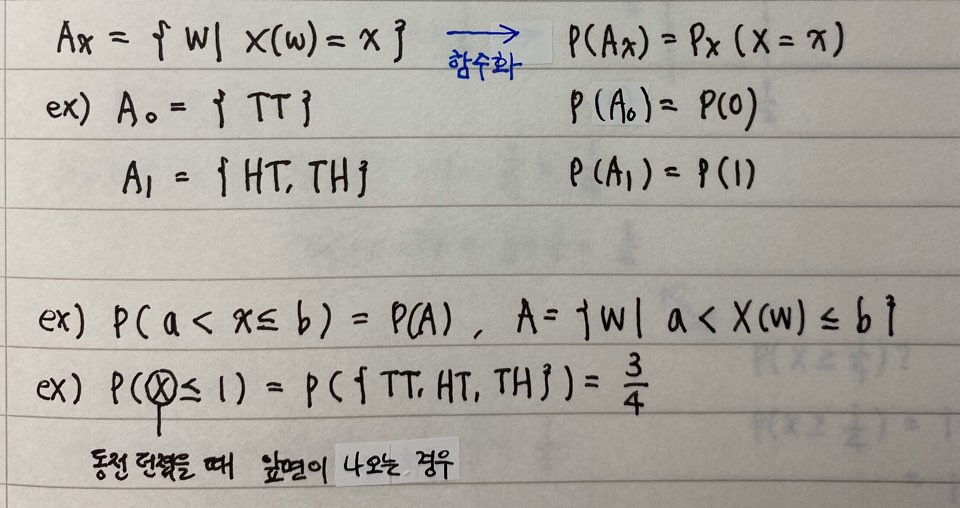 Ax = { W | X(w) = x } → 함수화 P(Ax) = Px (X = x)
ex) A₀ = { TT } P(A₀) = P(0)
A₁ = { HT, TH } P(A₁) = P(1)
ex) P( a < x ≤ b ) = P(A) , A = { W | a < X(w) ≤ b }
ex) P(X ≤ 1) = P( { TT, HT, TH } ) = 3/4
동전 던졌을 때 앞면이 나오는 경우